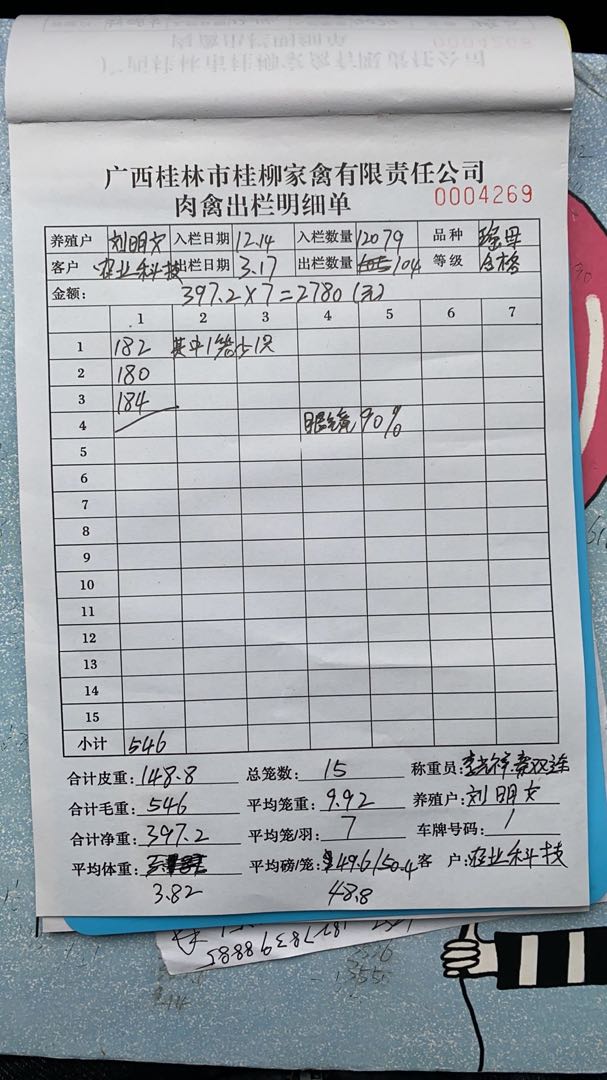 广西桂林市桂柳家禽有限责任公司
肉禽出栏明细单 0004269
养殖户 刘明文 入栏日期 12.14 入栏数量 12079 品种 瑶母
客户 农业科技 出栏日期 3.17 出栏数量 104 等级 合格
金额: 397.2×7=2780(元)
1 2 3 4 5 6 7
1 182 其中1笼少1只
2 180
3 184
4 眼镜90%
5
6
7
8
9
10
11
12
13
14
15
小计 546
合计皮重: 148.8 总笼数: 15 称重员:
合计毛重: 546 平均笼重: 9.92 养殖户: 刘明文
合计净重: 397.2 平均笼/羽: 7 车牌号码: /
平均体重: 平均磅/笼: 49.6/50.4 客 户: 农业科技
3.82 48.8